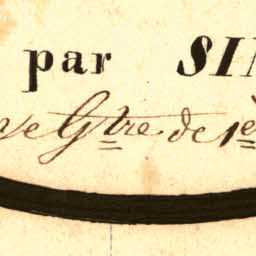 par SI
Gtre de 1è